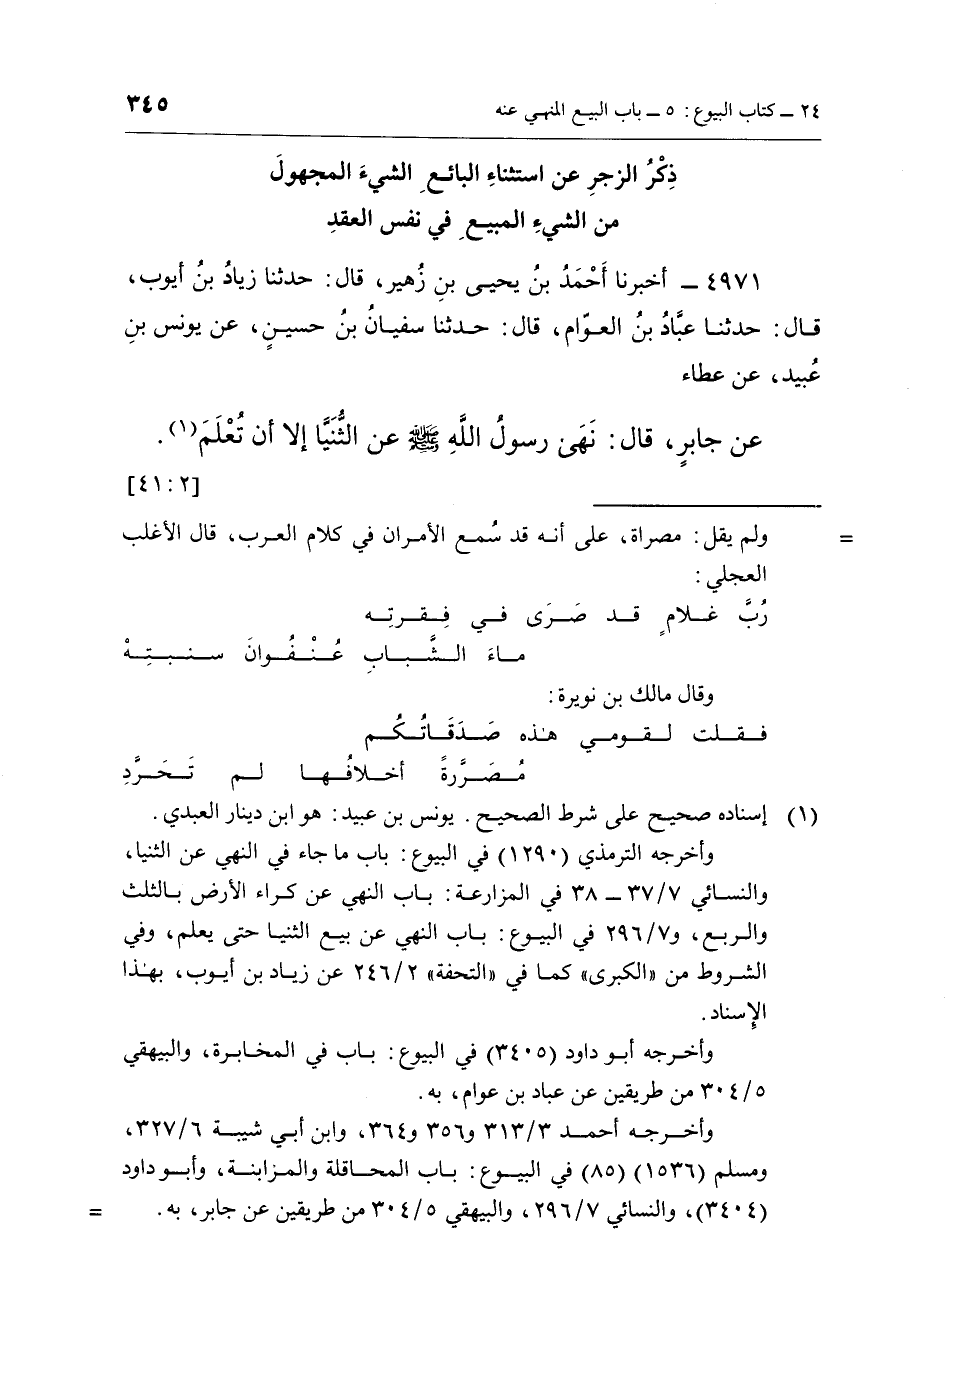 ٢٤ ـ كتاب البيوع: ٥ ـ باب البيع المنهي عنه ٣٤٥
ذِكْرُ الزجرِ عن استثناءِ البائعِ الشيءَ المجهولَ
من الشيءِ المبيعِ في نفس العقدِ
٤٩٧١ ـ أخبرنا أَحْمَدُ بنُ يحيى بنِ زُهير، قال: حدثنا زيادُ بنُ أيوب،
قال: حدثنا عبَّادُ بنُ العوّام، قال: حدثنا سفيانُ بنُ حسينٍ، عن يونس بنِ
عُبيد، عن عطاء
عن جابرٍ، قال: نَهَى رسولُ اللَّهِ ﷺ عن الثُّنَيَّا إلا أن تُعْلَمَ(١).
[٢: ٤١]
= ولم يقل: مصراة، على أنه قد سُمع الأمران في كلام العرب، قال الأغلب
العجلي:
رُبَّ غلامٍ قد صَرَى في فِقرتِه
ماءَ الشَّبابِ عُنْفُوانَ سنبتِهْ
وقال مالك بن نويرة:
فقلت لقومي هذه صَدَقَاتُكُم
مُصَرَّرةً أخلافُها لم تَحَرَّدِ
(١) إسناده صحيح على شرط الصحيح. يونس بن عبيد: هو ابن دينار العبدي.
وأخرجه الترمذي (١٢٩٠) في البيوع: باب ما جاء في النهي عن الثنيا،
والنسائي ٣٧/٧ ـ ٣٨ في المزارعة: باب النهي عن كراء الأرض بالثلث
والربع، و٢٩٦/٧ في البيوع: باب النهي عن بيع الثنيا حتى يعلم، وفي
الشروط من «الكبرى» كما في «التحفة» ٢٤٦/٢ عن زياد بن أيوب، بهذا
الإسناد.
وأخرجه أبو داود (٣٤٠٥) في البيوع: باب في المخابرة، والبيهقي
٣٠٤/٥ من طريقين عن عباد بن عوام، به.
وأخرجه أحمد ٣١٣/٣ و٣٥٦ و٣٦٤، وابن أبي شيبة ٣٢٧/٦،
ومسلم (١٥٣٦) (٨٥) في البيوع: باب المحاقلة والمزابنة، وأبو داود
(٣٤٠٤)، والنسائي ٢٩٦/٧، والبيهقي ٣٠٤/٥ من طريقين عن جابر، به. =